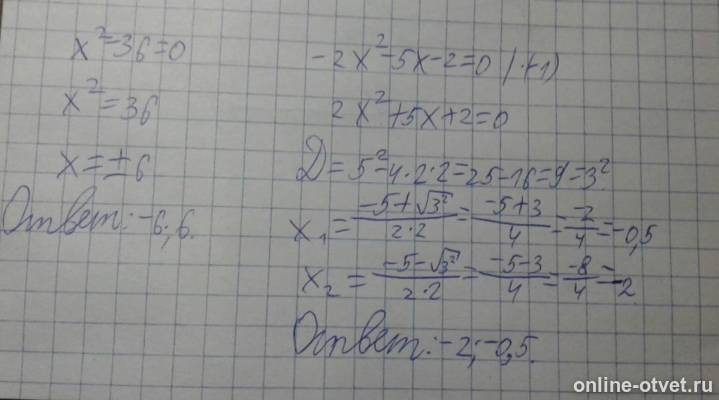 x²-36=0
x²=36
x=±6
Ответ: -6; 6.
-2x²-5x-2=0 |·(-1)
2x²+5x+2=0
D=5²-4·2·2=25-16=9=3²
x₁=(-5+√3²)/(2·2)=(-5+3)/4=-2/4=-0,5
x₂=(-5-√3²)/(2·2)=(-5-3)/4=-8/4=-2
Ответ: -2; -0,5.
online-otvet.ru